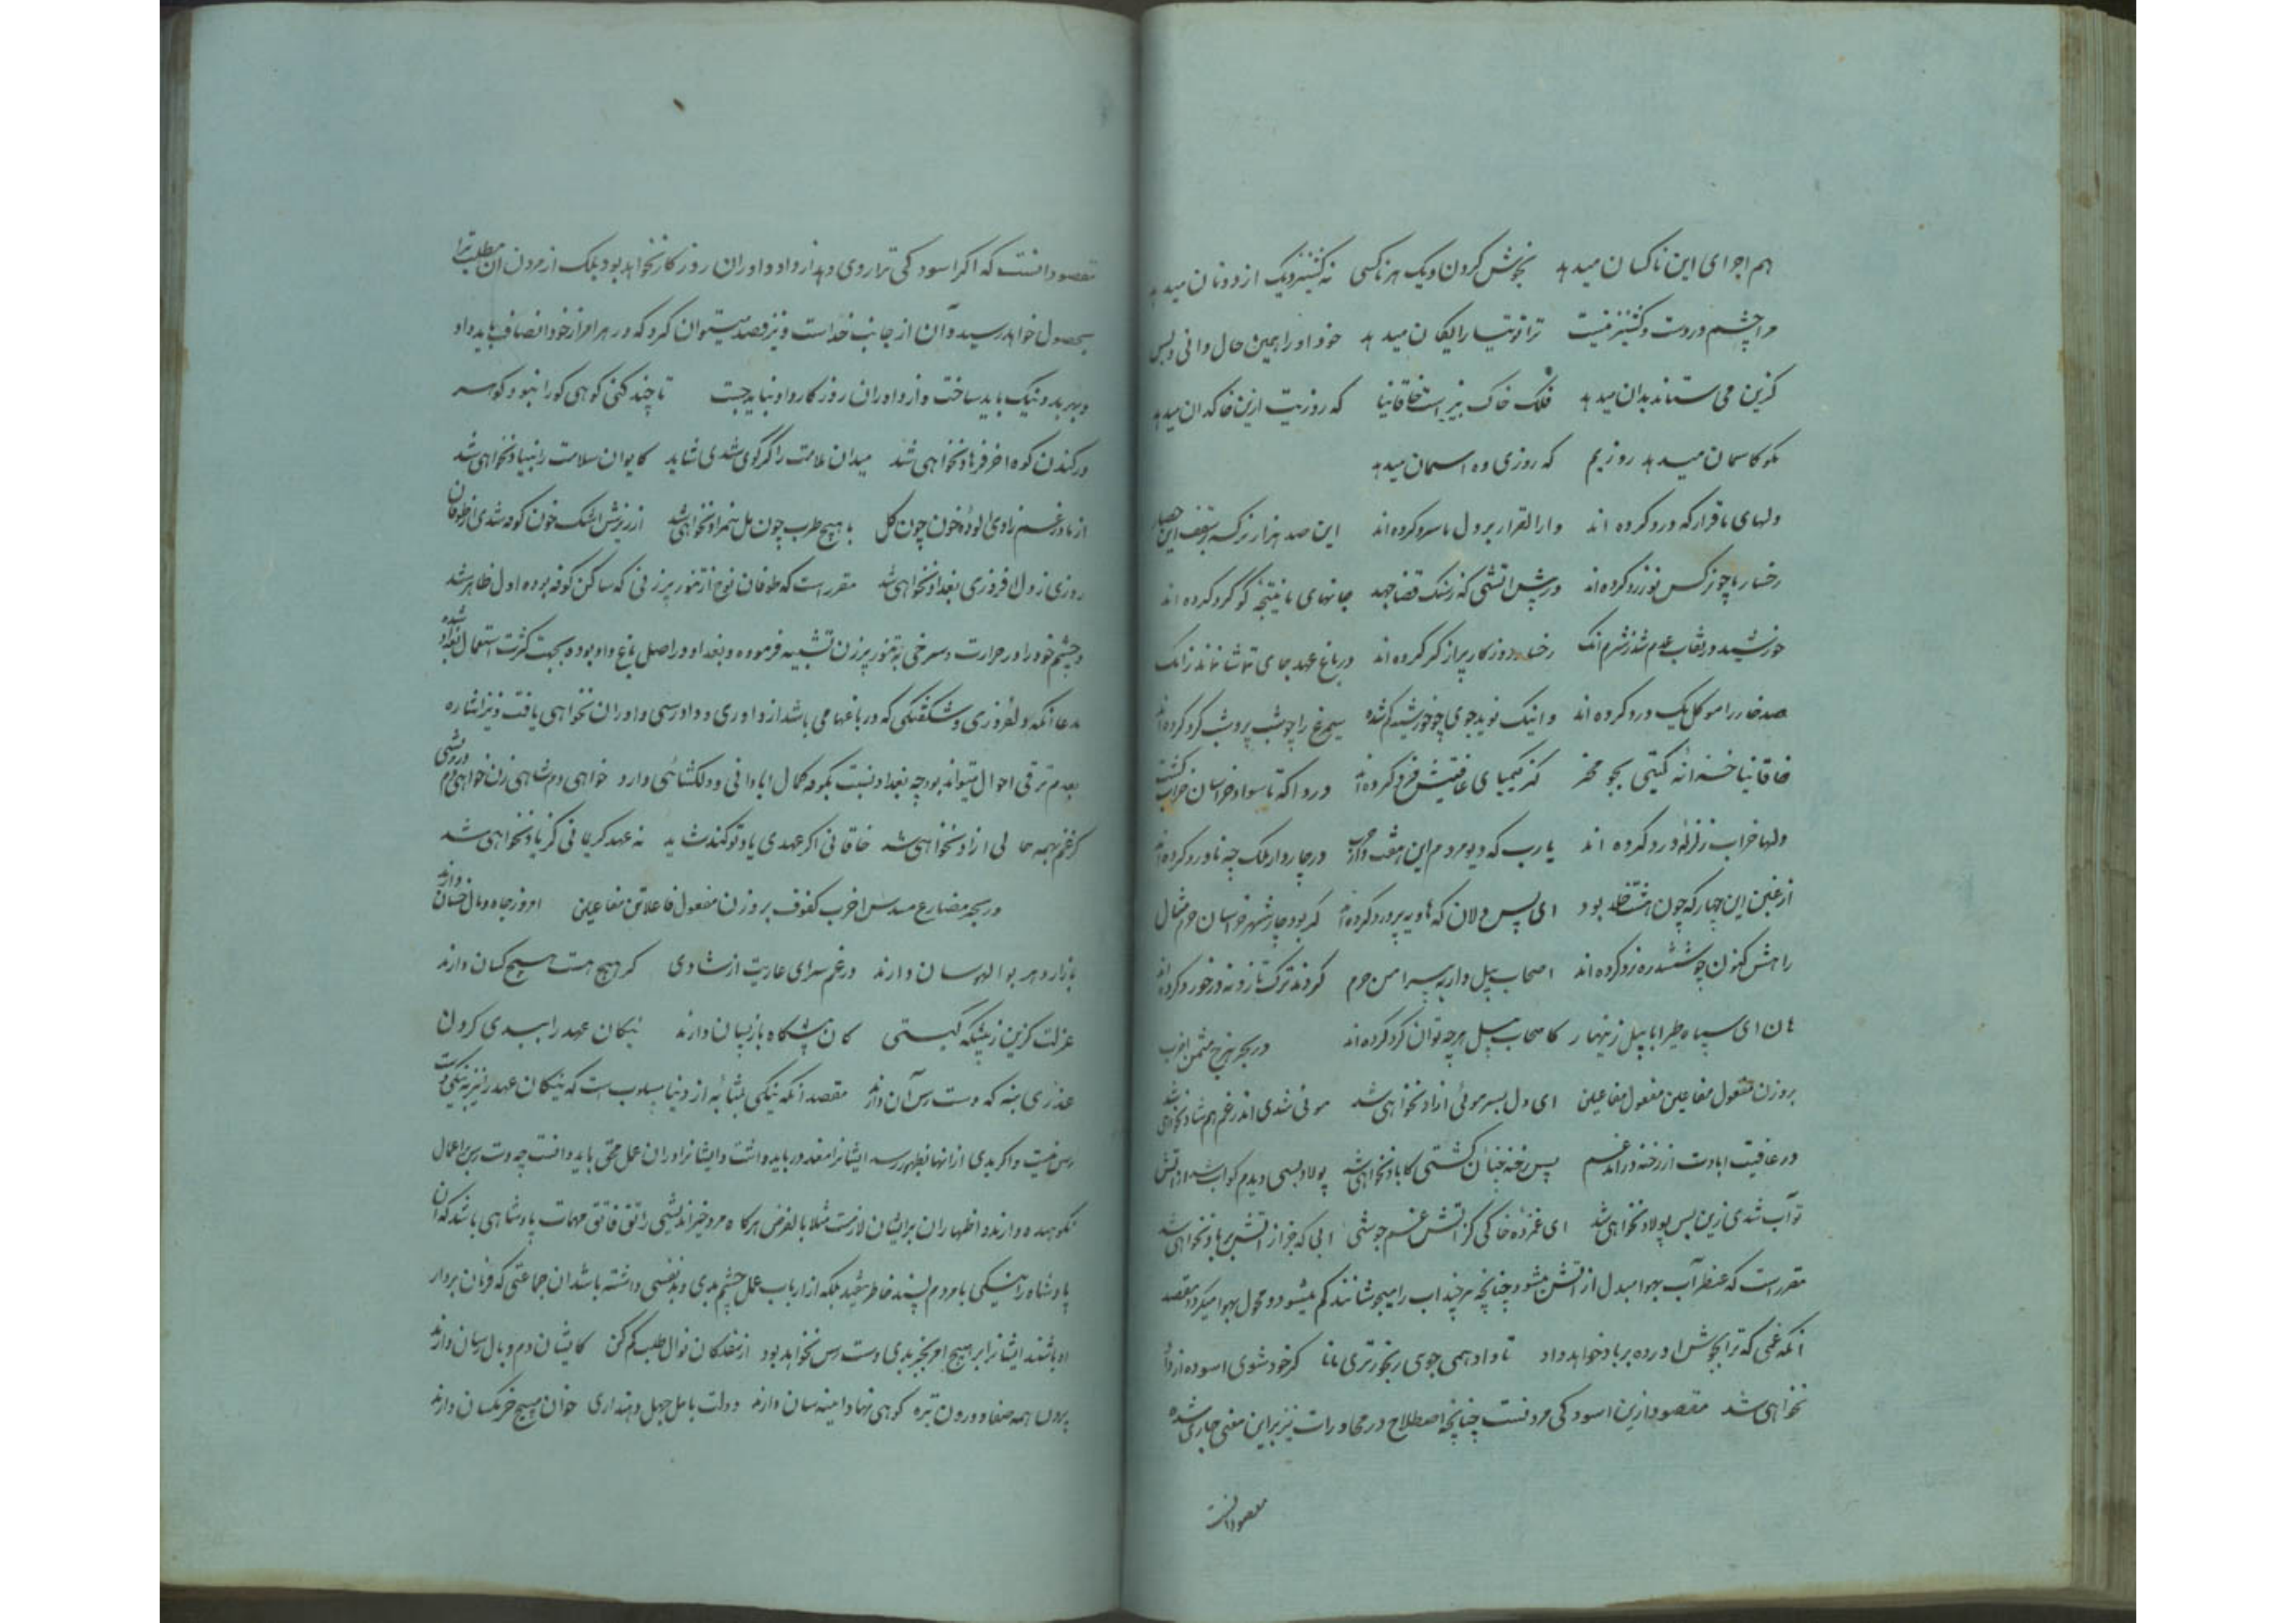 هم اجرای این ناکسان میدهد بجوش کردن دیک هر ناکسی نه کشنیز دیک از دونان میدهد
مرا چشم دردست و کشنیز نیست ترا توتیا رایکان میدهد خود او را همین حال دانی و بس
کزین می ستاند بدان میدهد فلک خاک بیز است خاقانیا که روزیت ازین خاکدان میدهد
مکو کاسمان میدهد روزیم که روزی ده اسمان میدهد
دلهای ما قرارکه درد کرده اند دارالقرار بر دل ما سرد کرده اند این صد هزار نرکسه بر سقف این حصار
رخسار ما چو نرکس نو زرد کرده اند در پیش اتشی که ز سنک قضا جهد جانهای ما نتیجه کوکرد کرده اند
خورشید در نقاب عدم شد ز شرم انک رخسار روزکار پر از کرد کرده اند در باغ عهد جای تماشا نماند زانک
صد خار را موکل یک ورد کرده اند و اینک نوید جوی چو خورشید کم شده سیمرغ را چو شب پره شب کرد کرده اند
خاقانیا خزانه کیتی بجو مخر کز کیمیای عافیتش فرد کرده اند دردا که تا سواد خراسان خراب کشت
دلها خراب زلزله درد کرده اند یارب که دیو مردم این هفت دار حرب در چار دار ملک چه ناورد کرده اند
از غبن این چهار که چون هشت خلد بود ای پس دلان که هاویه پرورد کرده اند کر بود چار شهر خراسان حرم مثال
راهش کنون چو ششدره نرد کرده اند اصحاب پیل وار به پیرامن حرم کردند ترک تاز و نه درخورد کرده اند
هان ای سپاه طیرا ابابیل زینهار کاصحاب پیل هرچه توان کرد کرده اند در بحر هزج مثمن اخرب
بروزن مفعول مفاعیلن مفعول مفاعیلن ای دل بسر موئی ازاد نخواهی شد موئی شدی اندر غم هم شاد نخواهی شد
در عافیت ابادت از رخنه دراند غم پس رخنه چنان کشتی کاباد نخواهی شد پولاد بسی دیدم کو اب شد از اتش
تو آب شدی زین پس پولاد نخواهی شد ای غمزده خاکی کز اتش غم جوشی ابی که جز از اتش بر باد نخواهی شد
مقرر است که عنصر آب بهوا مبدل از اتش میشود چنانچه هر چند اب را میجوشانند کم میشود و محول بهوا میکردد مقصد
انکه غمی که ترا بجوش اورده بر باد خواهد داد تا داد همی جوی رنجورتری مانا کز خود شوی اسوده از داد
نخواهی شد مقصود ازین اسودکی مردنست چنانچه اصطلاح در محاورات نیز برین معنی جاری شده
مقصود انست
مقصود انست که اکر اسودکی ترا روی دهد از داد داوران روزکار نخواهد بود بلک از مردن ان مطلب ترا
بحصول خواهد رسید و آن از جانب خداست و نیز قصد میتوان کرد که در هر امر از خود انصاف باید داد
و بهر بد و نیک باید ساخت و از داوران روزکار داد نباید جست تا چند کنی کوهی کورا نبود کوهر
در کندن کوه اخر فرهاد نخواهی شد میدان ملامت را کر کوی شدی شاید کایوان سلامت را بنیاد نخواهی شد
از مادر غم زادی الوده بخون چون کل با هیچ طرب چون مل همزاد نخواهی شد از ریزش اشک خون کوفه شدی از طوفان
روزی ز دل افروزی بغداد نخواهی شد مقرر است که طوفان نوح از تنور پیر زنی که ساکن کوفه بوده اول ظاهر شد
و چشم خود را در حرارت و سرخی به تنور پیر زن تشبیه فرموده و بغداد در اصل باغ داد بوده بجهت کثرت استعمال بغداد شده
مدعا انکه دلفروزی و شکفتکی که در باغها می باشد از داوری و دادرسی داوران نخواهی یافت و نیز اشاره
بعدم ترقی احوال میتواند بود چه بغداد نسبت بکوفه کمال ابادانی و دلکشائی دارد خواهی دم شاهی زن خواهی دم درویشی
کز غم بهمه حالی ازاد نخواهی شد خاقانی اکر عهدی یاد تو کند شاید نه عهد کریمانی کز یاد نخواهی شد
در بحر مضارع مسدس اخرب مکفوف بر وزن مفعول فاعلاتن مفاعیلن امروز جاه و مال خسان دارند
بازار دهر بوالهوسان دارند در غم سرای عاریت از شادی کر هیچ هست هیچ کسان دارند
عزلت کزین ز پیشکه کیتی کان پیشکاه باز پسان دارند نیکان عهد را ببدی کردن
عذری بنه که دست رس آن دارند مقصد انکه نیکی بمثابه از دنیا مسلوب است که نیکان عهد را نیز به نیکی دست
رس نیست و اکر بدی از انها بظهور رسد ایشانرا معذور باید داشت و ایشانرا در ان عمل محق باید دانست چه دست رس بر اعمال
نکوهیده دارند و اظهار ان بر ایشان لازمست مثلا بالفرض هرکاه مرد خیر اندیشی راتق فاتق مهمات پادشاهی باشد که ان
پادشاه را نیکی با مردم پسند خاطر نیفتد بلکه از ارباب عمل چشم بدی و بدنفسی داشته باشد ان جماعتی که فرمان بردار
او باشند ایشانرا بر هیچ امر بجز بدی دست رس نخواهد بود از سفلکان نوال طلب کم کن کایشان دم وبال رسان دارند
بیرون همه صفا و درون تیره کوهی نهاد اینه سان دارند دولت باهل جهل دهند اری خوان مسیح خرمکسان دارند